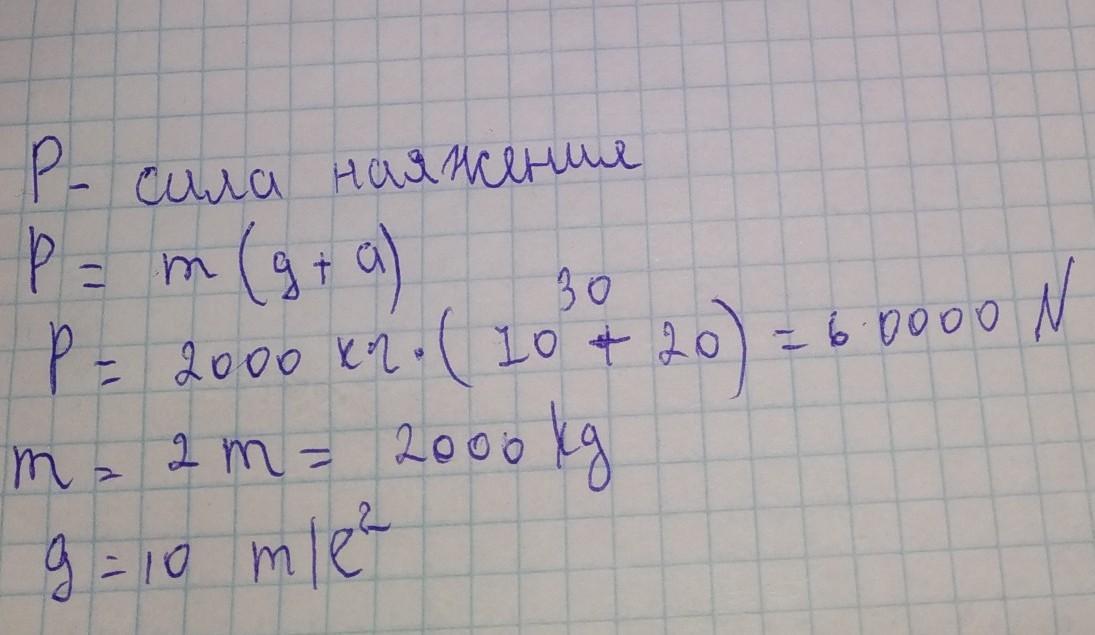 P - сила наяжения
P = m (g + a)
30
P = 2000 кг · ( 10 + 20 ) = 60000 N
m = 2 m = 2000 kg
g = 10 m/c²